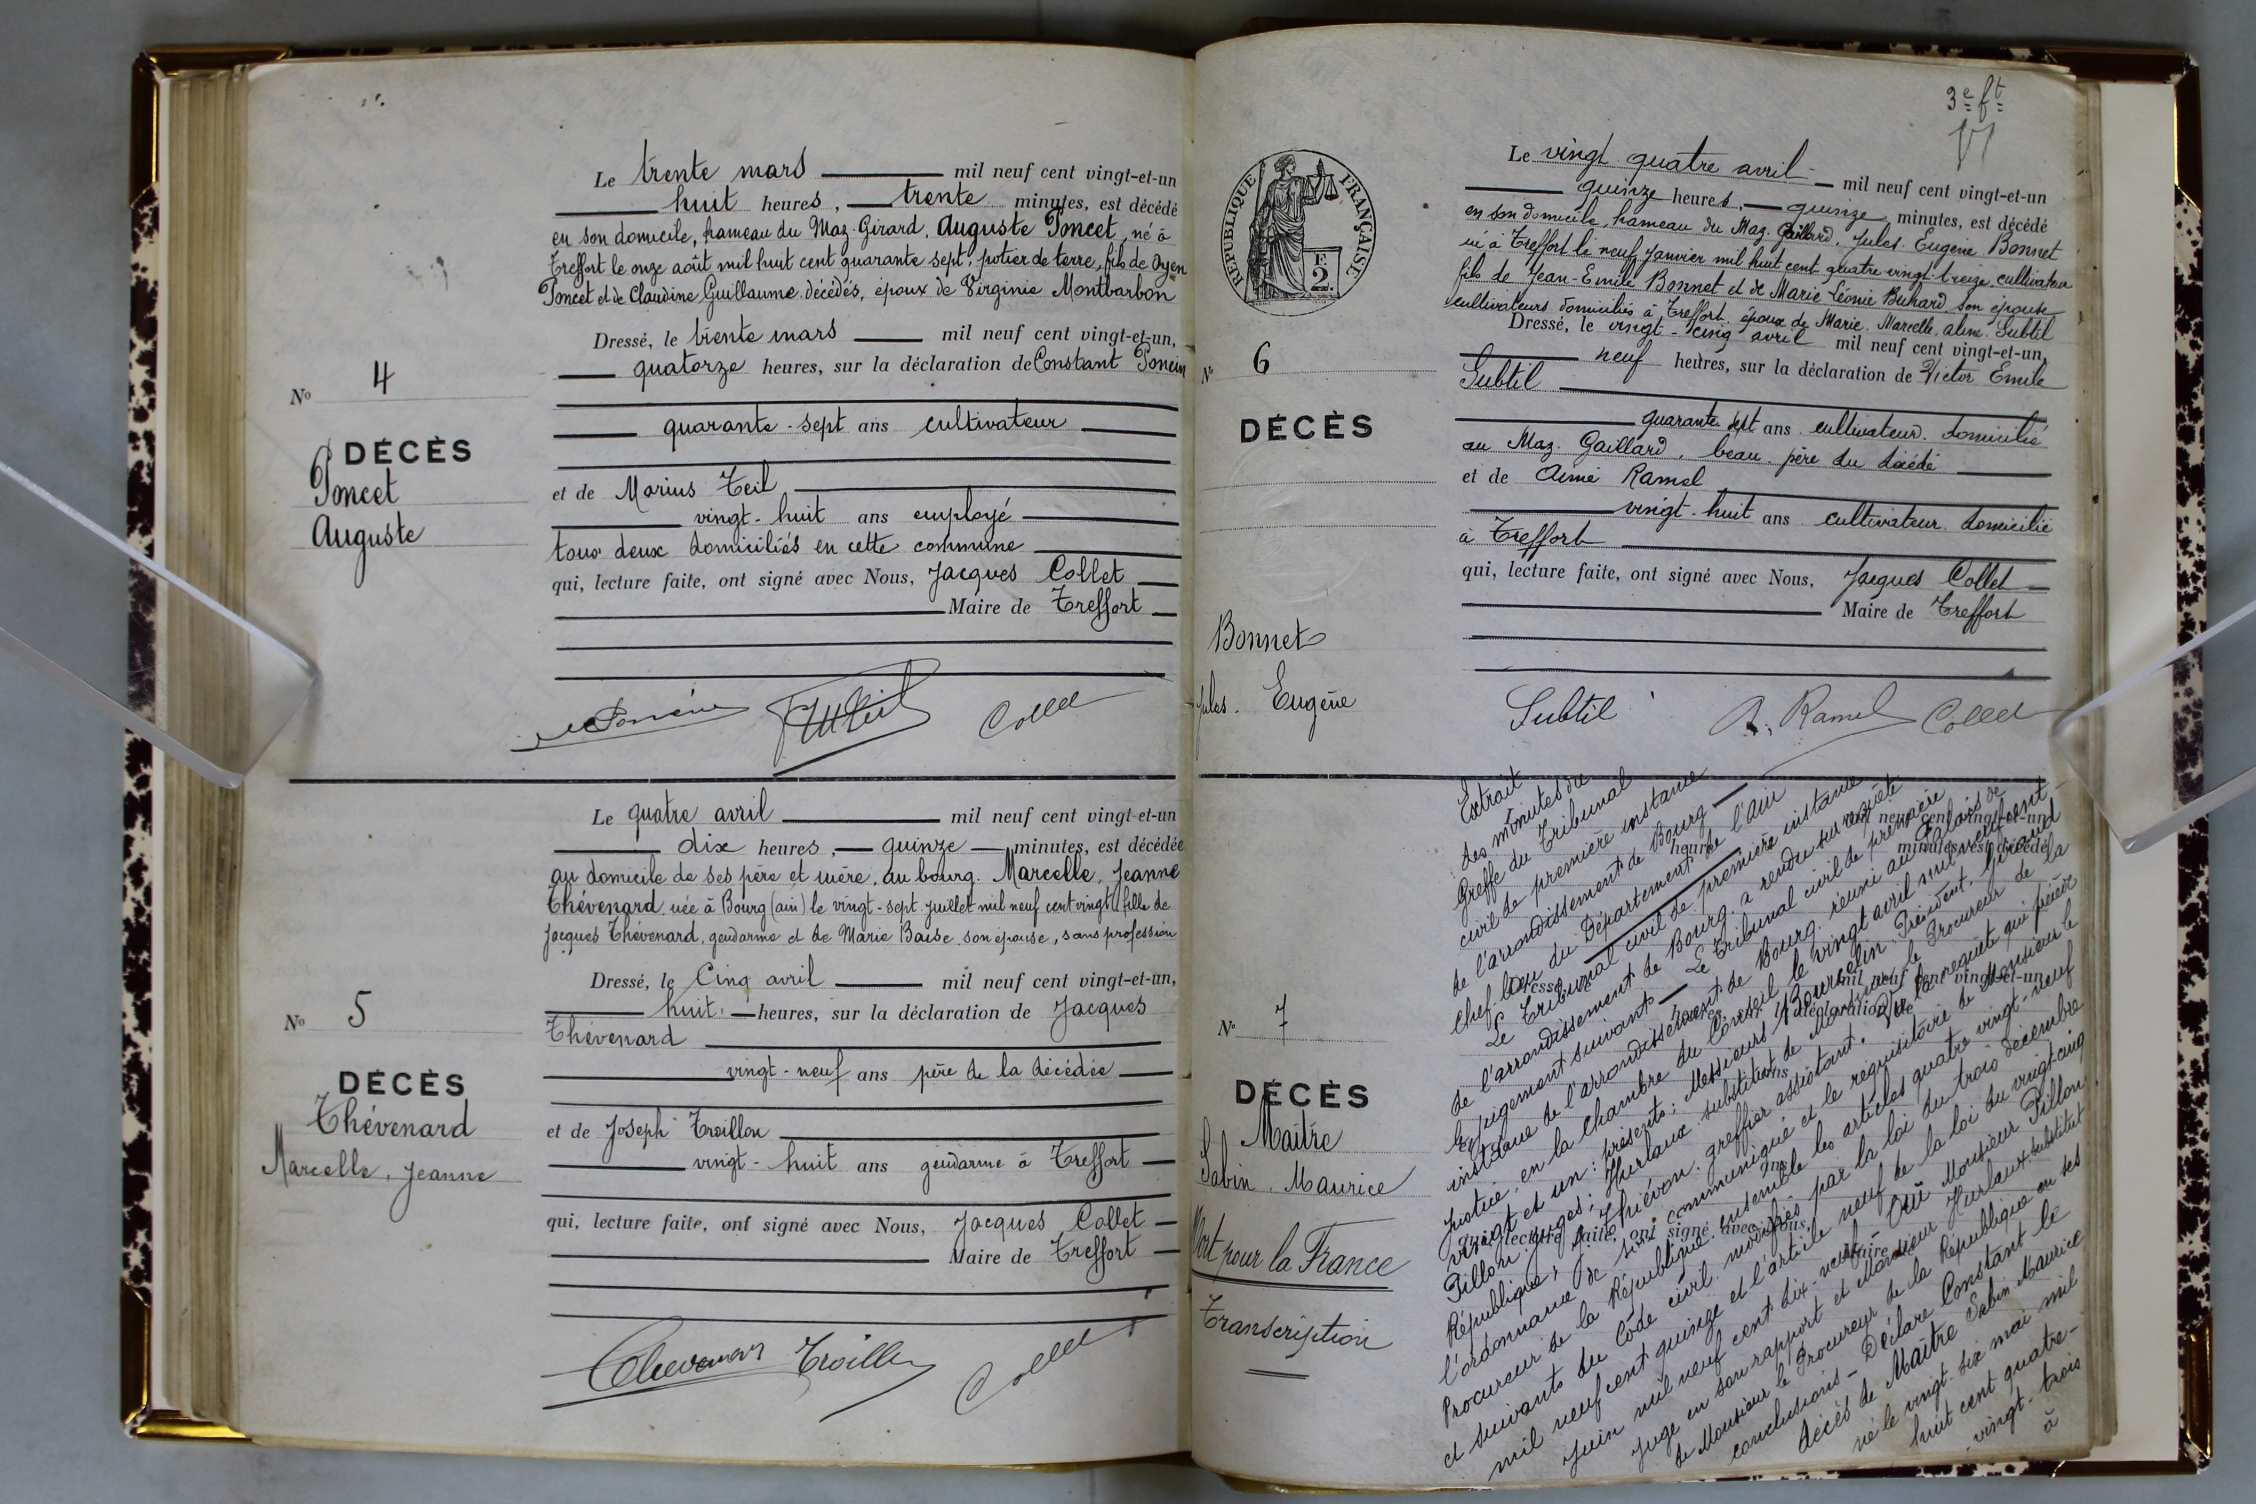 Le trente mars mil neuf cent vingt-et-un
huit heures, trente minutes, est décédé
en son domicile, hameau du Maz-Girard, Auguste Poncet, né à
Treffort le onze août mil huit cent quarante sept, potier de terre, fils de Oyen
Poncet et de Claudine Guillaume décédés, époux de Virginie Montbarbon
Dressé, le trente mars mil neuf cent vingt-et-un,
quatorze heures, sur la déclaration de Constant Poncin
quarante-sept ans cultivateur
et de Marius Teil
vingt-huit ans employé
tous deux domiciliés en cette commune
qui, lecture faite, ont signé avec Nous, Jacques Collet
Maire de Treffort
No 4
DÉCÈS
Poncet
Auguste
Collet
Le quatre avril mil neuf cent vingt-et-un
dix heures, quinze minutes, est décédée
au domicile de ses père et mère, au bourg. Marcelle, Jeanne
Thévenard née à Bourg (ain) le vingt-sept juillet mil neuf cent vingt, fille de
Jacques Thévenard, gendarme et de Marie Baise son épouse, sans profession
Dressé, le Cinq avril mil neuf cent vingt-et-un,
huit heures, sur la déclaration de Jacques
Thévenard
vingt-neuf ans père de la décédée
et de Joseph Troillon
vingt-huit ans gendarme à Treffort
qui, lecture faite, ont signé avec Nous, Jacques Collet
Maire de Treffort
No 5
DÉCÈS
Thévenard
Marcelle, Jeanne
Thevenard Troillon Collet
3e ft
VI
RÉPUBLIQUE FRANÇAISE
F.
2.
Le vingt quatre avril mil neuf cent vingt-et-un
quinze heures, quinze minutes, est décédé
en son domicile, hameau du Maz. Gaillard, Jules Eugène Bonnet
né à Treffort le neuf Janvier mil huit cent quatre vingt-treize, cultivateur
fils de Jean-Emile Bonnet et de Marie Léonie Buhard son épouse
cultivateurs domiciliés à Treffort, époux de Marie Marcelle Aline Subtil
Dressé, le vingt-cinq avril mil neuf cent vingt-et-un,
neuf heures, sur la déclaration de Victor Emile
Subtil
quarante sept ans cultivateur domicilié
au Maz. Gaillard, beau-père du décédé
et de Aimé Ramel
vingt-huit ans cultivateur domicilié
à Treffort
qui, lecture faite, ont signé avec Nous, Jacques Collet
Maire de Treffort
No 6
DÉCÈS
Bonnet
Jules. Eugène
Subtil A. Ramel Collet
No 7
DÉCÈS
Maître
Sabin. Maurice
Mort pour la France
Transcription
Extrait
des minutes du
Greffe du Tribunal
civil de première instance
de l'arrondissement de Bourg
Chef-lieu du Département de l'ain
Le Tribunal civil de première instance
de l'arrondissement de Bourg, a rendu sur requête
le jugement suivant — Le Tribunal civil de première
instance de l'arrondissement de Bourg, réuni au Palais de
Justice, en la chambre du Conseil, le vingt avril mil neuf cent
vingt et un: présents: Messieurs Bourselin Président, Giraud
Pillon, juges; Hurlaux, substitut de Monsieur le Procureur de la
République; Thiévon, greffier assistant. Vu la requête qui précède
l'ordonnance de soit communiqué et le requisitoire de Monsieur le
Procureur de la République ensemble les articles quatre vingt-neuf
et suivants du Code civil modifiés par la loi du trois décembre
mil neuf cent quinze et l'article neuf de la loi du vingt-cinq
Juin mil neuf cent dix-neuf. Ouï Monsieur Pillon,
juge en son rapport et Monsieur Hurlaux, substitut
de Monsieur le Procureur de la République en ses
conclusions — Déclare Constant le
décès de Maître Sabin Maurice
né le vingt-six mai mil
huit cent quatre-
vingt-trois
à